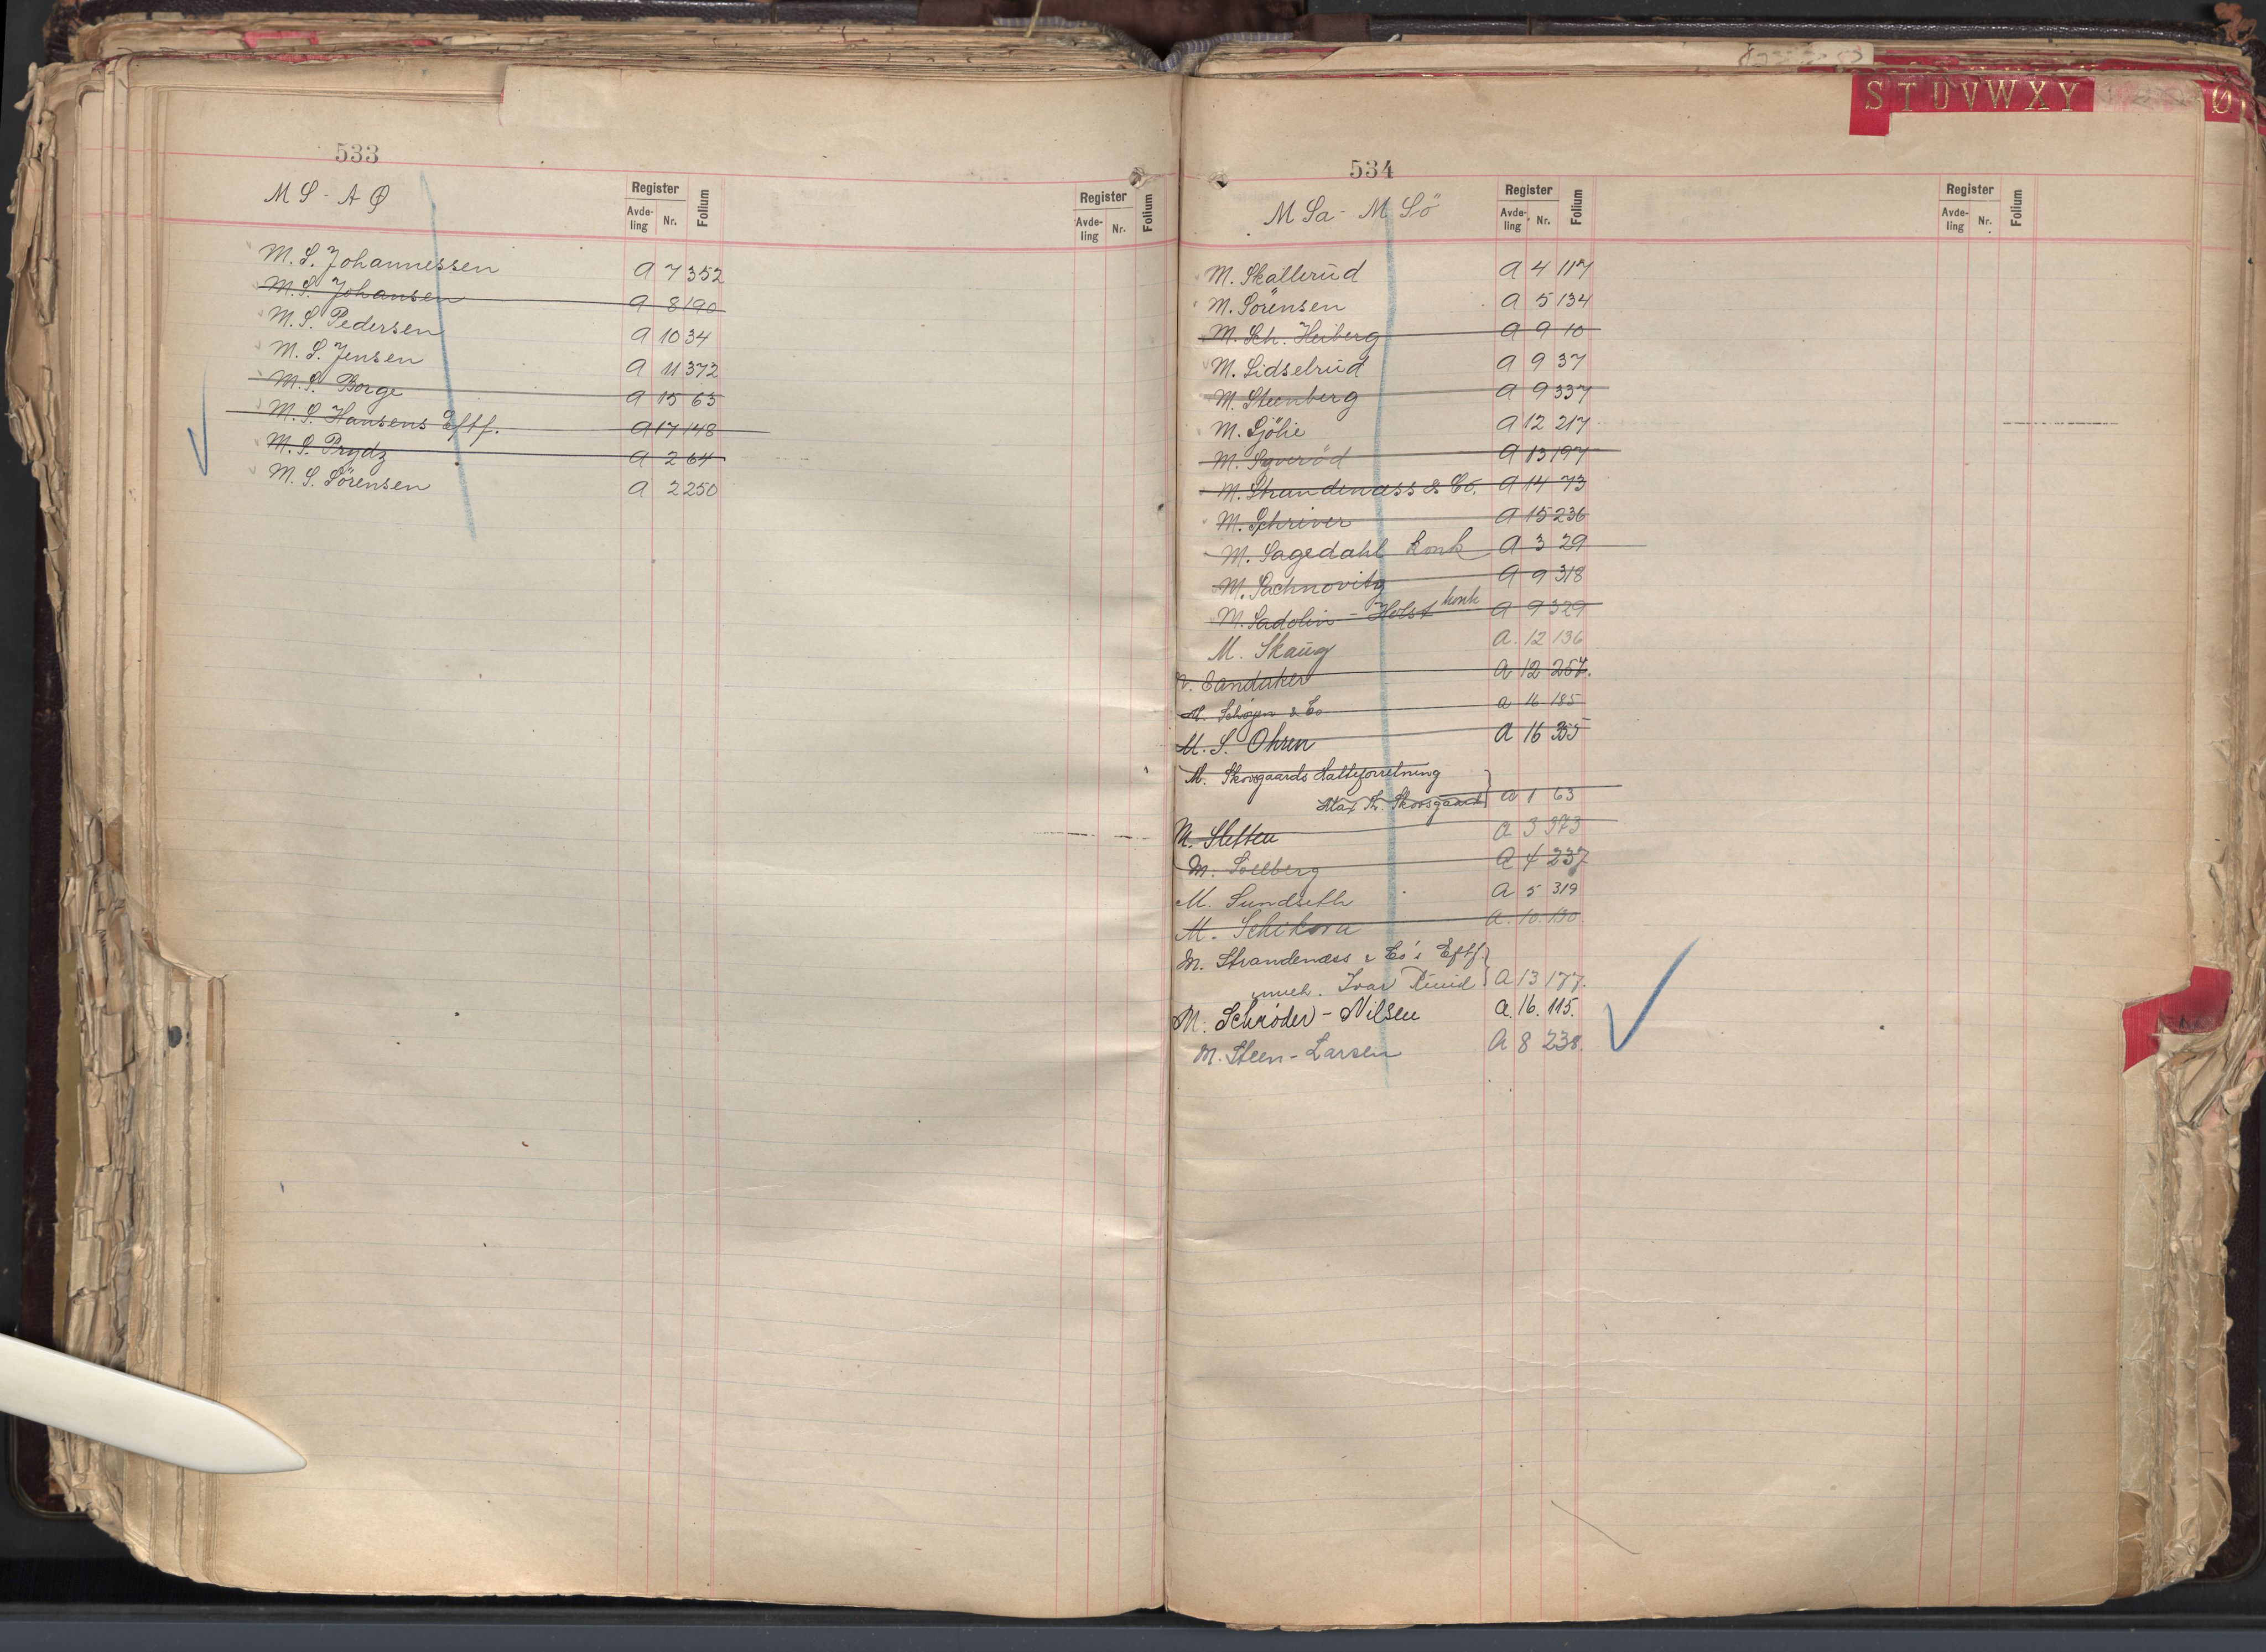 533
M S - A Ø
Register
Avde-
ling
Nr.
Folium
Register
Avde-
ling
Nr.
Folium
M. S. Johannessen A 7 352
M. S. Johansen A 8 190
M. S. Pedersen A 10 34
M. S. Jensen A 11 372
M. S. Borge A 15 63
M. S. Hansens Eftf. A 17 148
M. S. Prydz A 2 64
M. S. Sörensen A 2 250
S T U V W X Y
Ø
534
M Sa - M Sö
Register
Avde-
ling
Nr.
Folium
Register
Avde-
ling
Nr.
Folium
M. Skallerud A 4 117
M. Sörensen A 5 134
M. Sch. Heiberg A 9 10
M. Sidselrud A 9 37
M. Steenberg A 9 337
M. Sjölie A 12 217
M. Syveröd A 13 197
M. Strandenæss & Co. A 14 73
M. Schriver A 15 236
M. Sagedahl konk A 3 29
M. Sachnovitz A 9 318
M. Sadolin - Holst konk A 9 329
M. Skaug A. 12 136
Sandaker A 12 257.
M. Schøyen & Co a 16 185
M. S. Ohren A 16 355
M. Skovgaards Hatteforretning
Max Th. Skovsgaard a 1 63
M. Sletten a 3 373
M. Sollberg A 4 237
M. Sundseth A 5 319
M. Schikora a. 10. 130
M. Strandenæss & Co's Eftf.
inneh. Ivar Ruud A 13 177.
M. Schrøder - Nilsen A. 16. 115.
M. Steen - Larsen A 8 238.